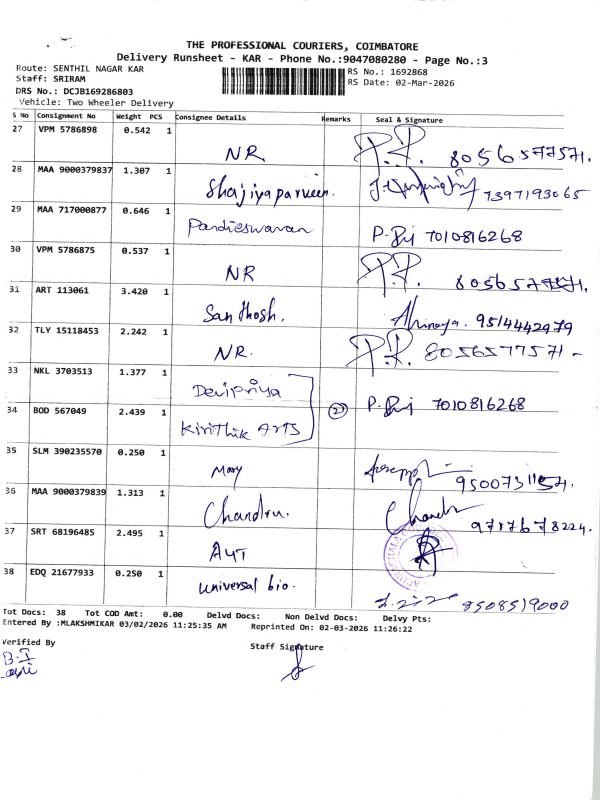 THE PROFESSIONAL COURIERS, COIMBATORE
Delivery Runsheet - KAR - Phone No.:9047080280 - Page No.:3
Route: SENTHIL NAGAR KAR RS No.: 1692868
Staff: SRIRAM RS Date: 02-Mar-2026
DRS No.: DCJB169286803
Vehicle: Two Wheeler Delivery
S No Consignment No Weight PCS Consignee Details Remarks Seal & Signature
27 VPM 5786898 0.542 1 NR P.P. 8056577571.
28 MAA 9000379837 1.307 1 Shajiyaparveen. 7397193065
29 MAA 717000877 0.646 1 Pandieswaran P. 7010816268
30 VPM 5786875 0.537 1 NR P.P. 8056577571.
31 ART 113061 3.420 1 Santhosh. Abinaya. 9514442979
32 TLY 15118453 2.242 1 NR. P.P. 8056577571 -
33 NKL 3703513 1.377 1 Devipriya P. 7010816268
34 BOD 567049 2.439 1 Kirithik Arts
35 SLM 390235570 0.250 1 Mary
36 MAA 9000379839 1.313 1 Chandru.
37 SRT 68196485 2.495 1
38 EDQ 21677933 0.250 1 Universal bio. 8508519000
Tot Docs: 38 Tot COD Amt: 0.00 Delvd Docs: Non Delvd Docs: Delvy Pts:
Entered By :MLAKSHMIKAR 03/02/2026 11:25:35 AM Reprinted On: 02-03-2026 11:26:22
Verified By Staff Signature